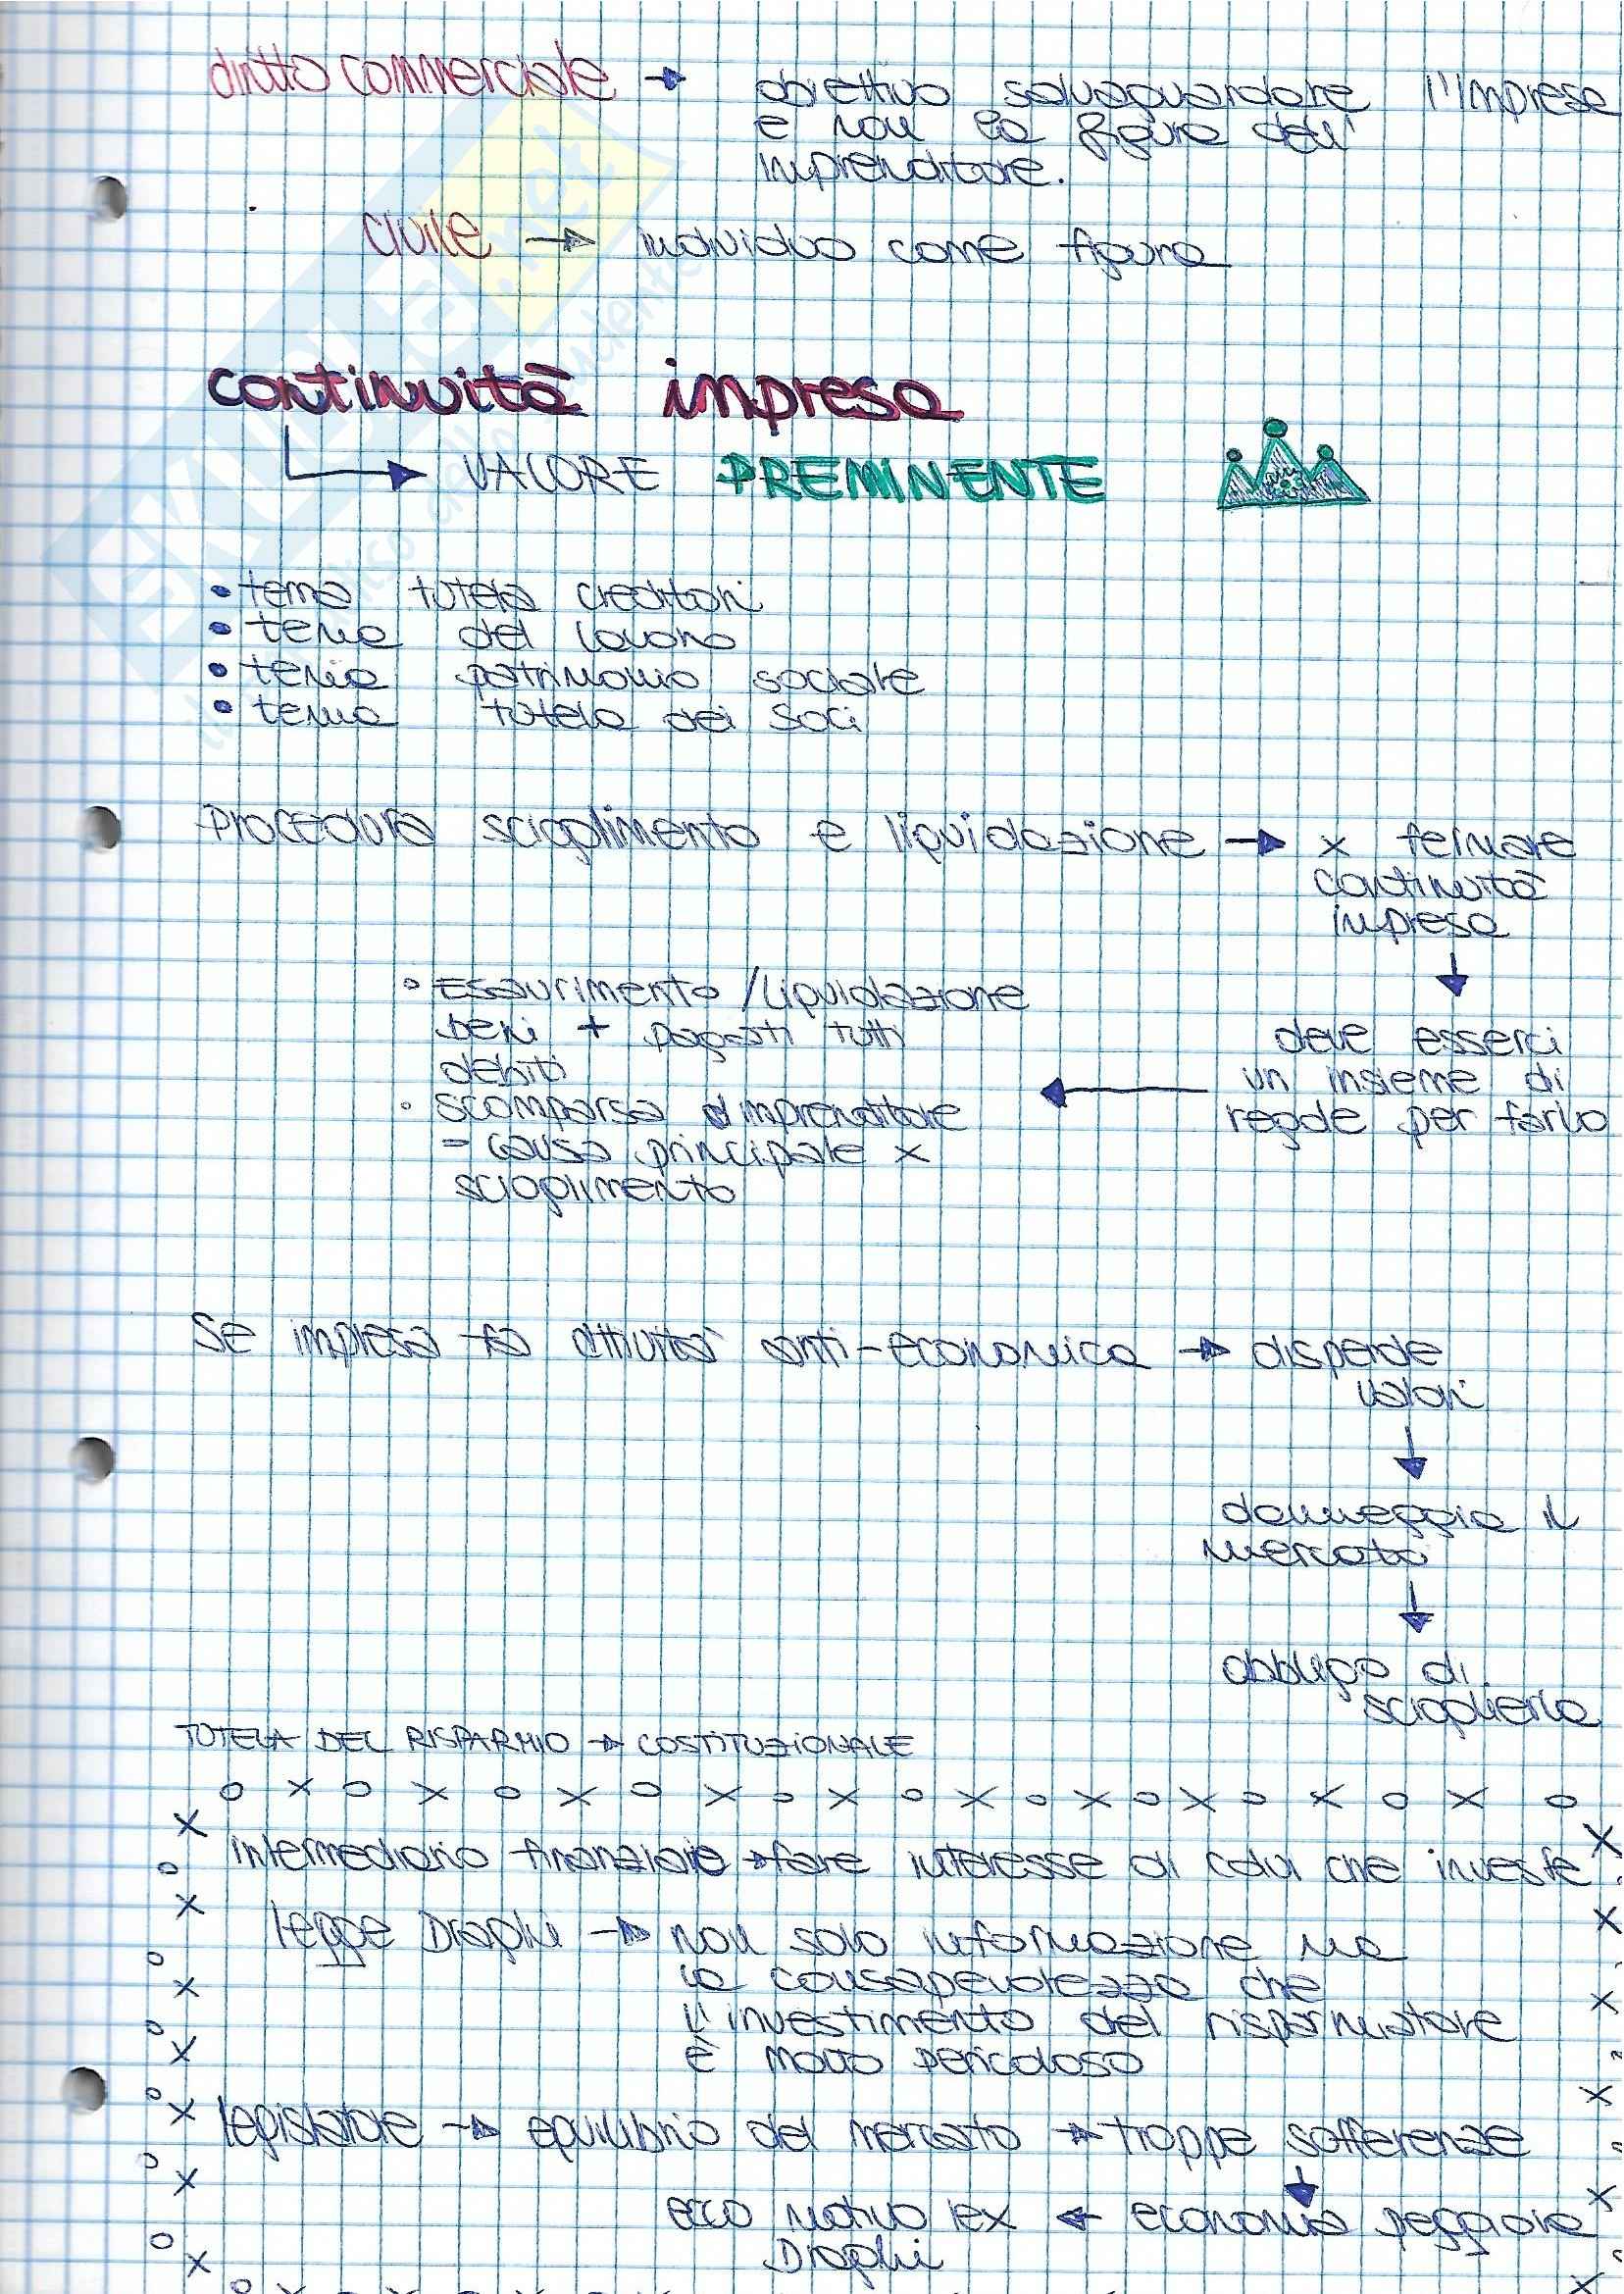 diritto commerciale → obiettivo salvaguardare l'impresa
e non la figura dell'
imprenditore.
civile → individuo come figura
continuità impresa
→ VALORE PREMINENTE
• tema tutela creditori
• tema del lavoro
• tema patrimonio sociale
• tema tutela dei soci
Procedura scioglimento e liquidazione → x fermare
continuità
impresa
↓
deve esserci
un insieme di
regole per farlo
←
° Esaurimento / liquidazione
beni + pagati tutti
debiti
° scomparsa d'imprenditore
- causa principale x
scioglimento
Se impresa fa attività anti-economica → disperde
valori
↓
danneggia il
mercato
↓
obbligo di
scioglierla
TUTELA DEL RISPARMIO → COSTITUZIONALE
intermediario finanziario → fare interesse di colui che investe.
legge Draghi → non solo informazione ma
la consapevolezza che
l'investimento del risparmiatore
è molto pericoloso
legislatore → equilibrio del mercato → troppe sofferenze
↓
ecco motivo lex ← economia peggiora
Draghi
SKUOLA.net